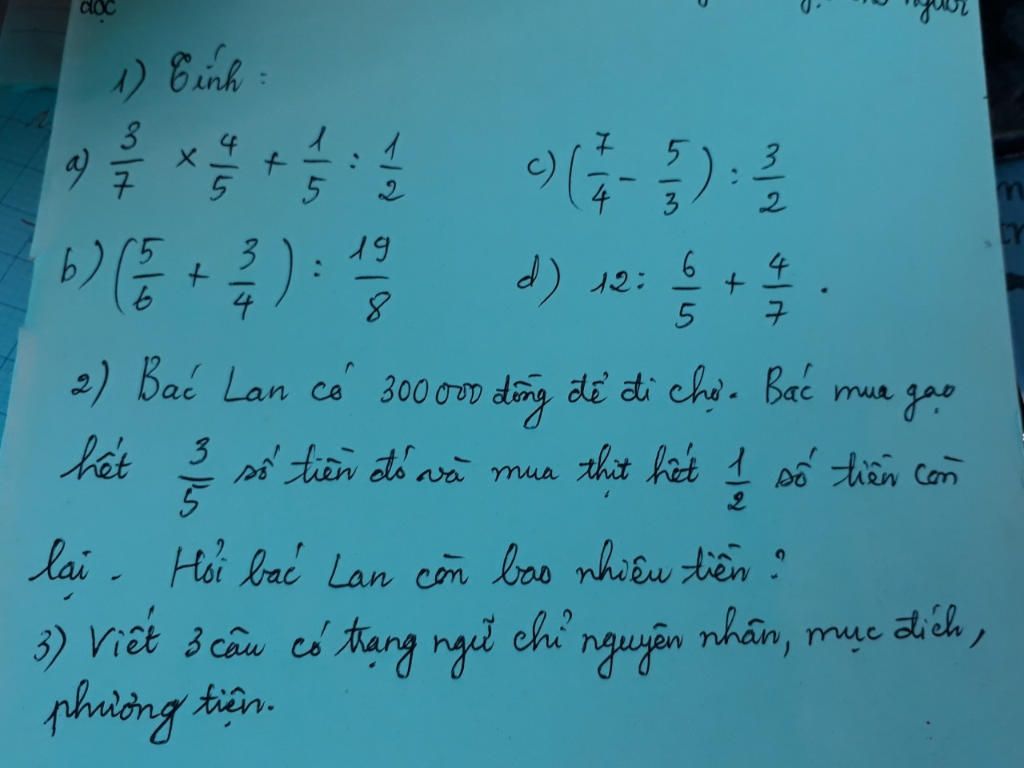 đọc người
1) Tính:
a) 3/7 × 4/5 + 1/5 : 1/2 c) (7/4 - 5/3) : 3/2
b) (5/6 + 3/4) : 19/8 d) 12 : 6/5 + 4/7 .
2) Bác Lan có 300000 đồng để đi chợ. Bác mua gạo
hết 3/5 số tiền đó và mua thịt hết 1/2 số tiền còn
lại. Hỏi bác Lan còn bao nhiêu tiền?
3) Viết 3 câu có trạng ngữ chỉ nguyên nhân, mục đích,
phương tiện.